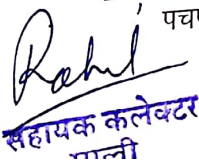 पच
Rahul
सहायक कलेक्टर
पाली